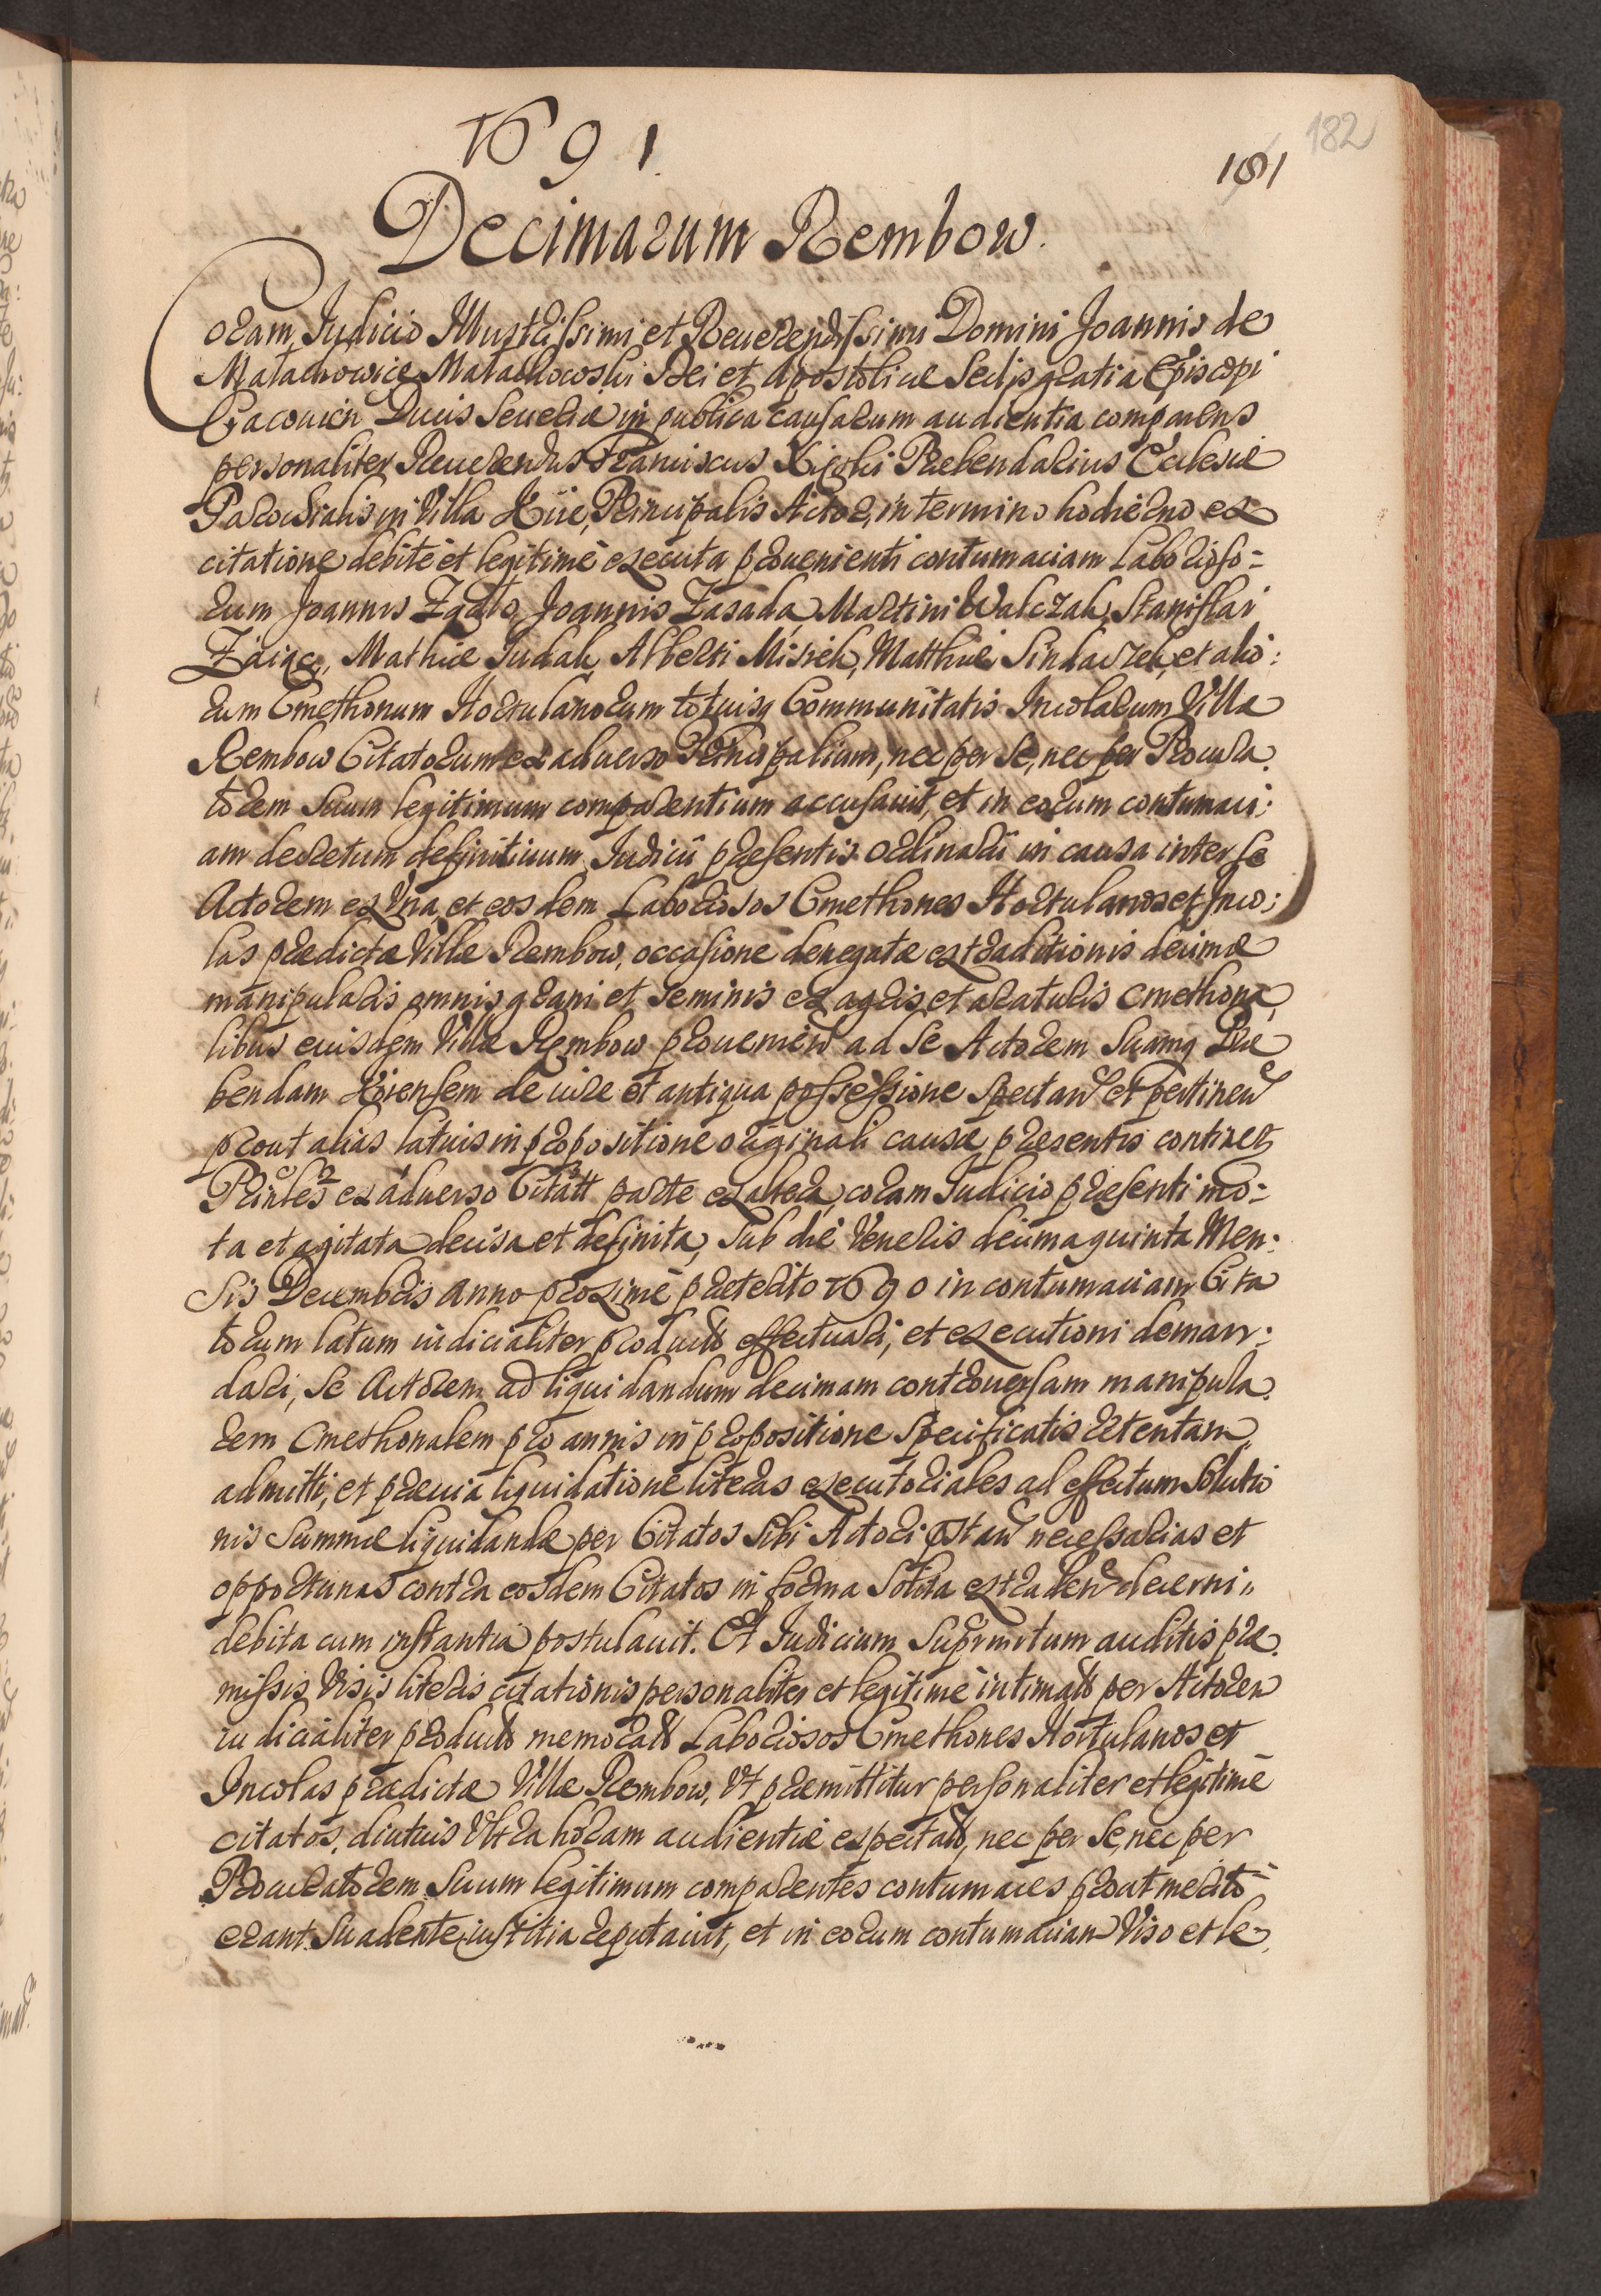 1691
181
182
Decimarum Rembow.
Coram Judicio Illustrissimi et Reuerendissimi Domini Joannis de
Małachowice Małachowski Dei et Apostolicæ Sedis gratia Episcopi
Cracouien Ducis Seueriæ in publica causarum audientia comparens
personaliter Reuerendus Franciscus Præbendarius Ecclesiæ
Parochialis in Villa Kiie, Principalis Actor, in termino hodierno ex
citatione debitè et legitimè executa prouenienti contumaciam Laborioso=
rum Joannis Joannis Zasada, Martini Walczak, Stanislai
Zaiąc, Mathiæ Judak, Alberti Misiek, Matthiæ et alio:
rum Cmethonum Hortulanorum totiusq Communitatis Incolarum Villæ
Rembow Citatorum ex aduerso Principalium, nec per se, nec per Procura
torem Suum legitimum comparentium accusauit, et in eorum contumaci:
am decretum definitiuum Judicii præsentis ordinarii in causa inter se
Actorem ex Vna, et eosdem Laboriosos Cmethones Hortulanos et Inco:
las prædictæ Villæ Rembow, occasione denegatæ extraditionis decimæ
manipularis omnis grani et Seminis ex agris et araturis Cmethona
libus eiusdem Villæ Rembow prouenien ad Se Actorem Suamq Præ
bendam Kiiensem de iure et antiqua possessione Spectan et pertinen
prout alias latius in propositione originali causæ præsentis continet
Princles ex aduerso Citatt parte ex altera, coram Judicio præsenti mo=
ta et agitata decisa et definita, sub die Veneris decima quinta Men:
sis Decembris Anno proximè præterito 1690 in contumaciam Cita
torum latum iudicialiter product effectuari, et executioni deman:
dari, Se Actorem ad liquidandum decimam controuersam manipula
rem Cmethonalem pro annis in propositione Specificatis retentam
admitti, et præuia liquidatione literas executoriales ad effectum Solutio
nis Summæ liquidandæ per Citatos Sibi Actori necessarias et
opportunas contra eosdem Citatos in forma Solita extraden decerni
debita cum instantia postulauit. Et Judicium Suprimitum auditis præ
missis Visis literis citationis personaliter et legitimè intimat per Actorem
iudicialiter product memorat Laboriosos Cmethones Hortulanos et
Incolas prædictæ Villæ Rembow, Vt præmittitur personaliter et legitimè
citatos, diutius Vltra horam audientiæ expectat, nec per Se, nec per
Procuratorem Suum legitimum comparentes contumaces prout meritò
erant Suadente iustitia reputauit, et in eorum contumaciam Viso et le